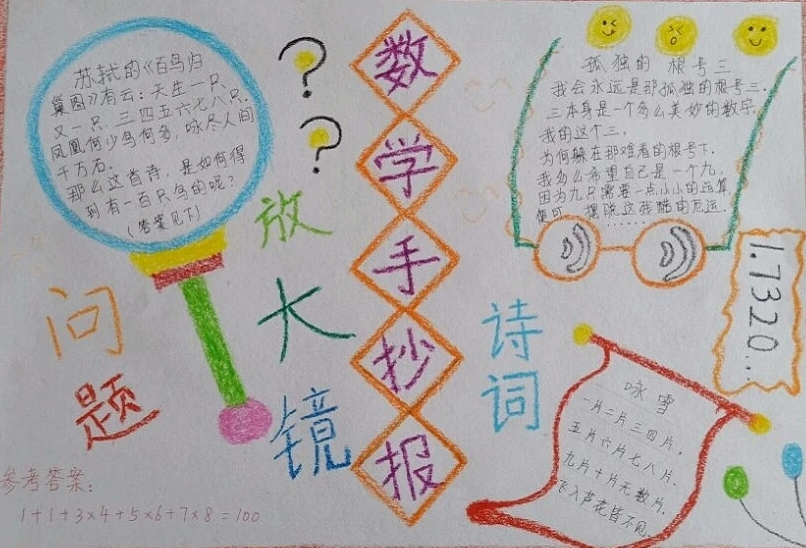 苏轼的《百鸟归
巢图》有云：天生一只
又一只，三四五六七八只.
凤凰何少鸟何多，啄尽人间
千万石.
那么这首诗，是如何得
到有一百只鸟的呢？
（答案见下）
问题
放大镜
参考答案：
1+1+3×4+5×6+7×8=100
数学手抄报
孤独的 根号三
我会永远是那孤独的根号三.
三本身是一个多么美妙的数字,
我的这个三,
为何躲在那难看的根号下.
我多么希望自己是一个九,
因为九只需要一点小小的运算,
便可 摆脱这残酷的厄运.
......
1.7320...
诗词
咏雪
一片二片三四片,
五片六片七八片.
九片十片无数片,
飞入芦花皆不见.